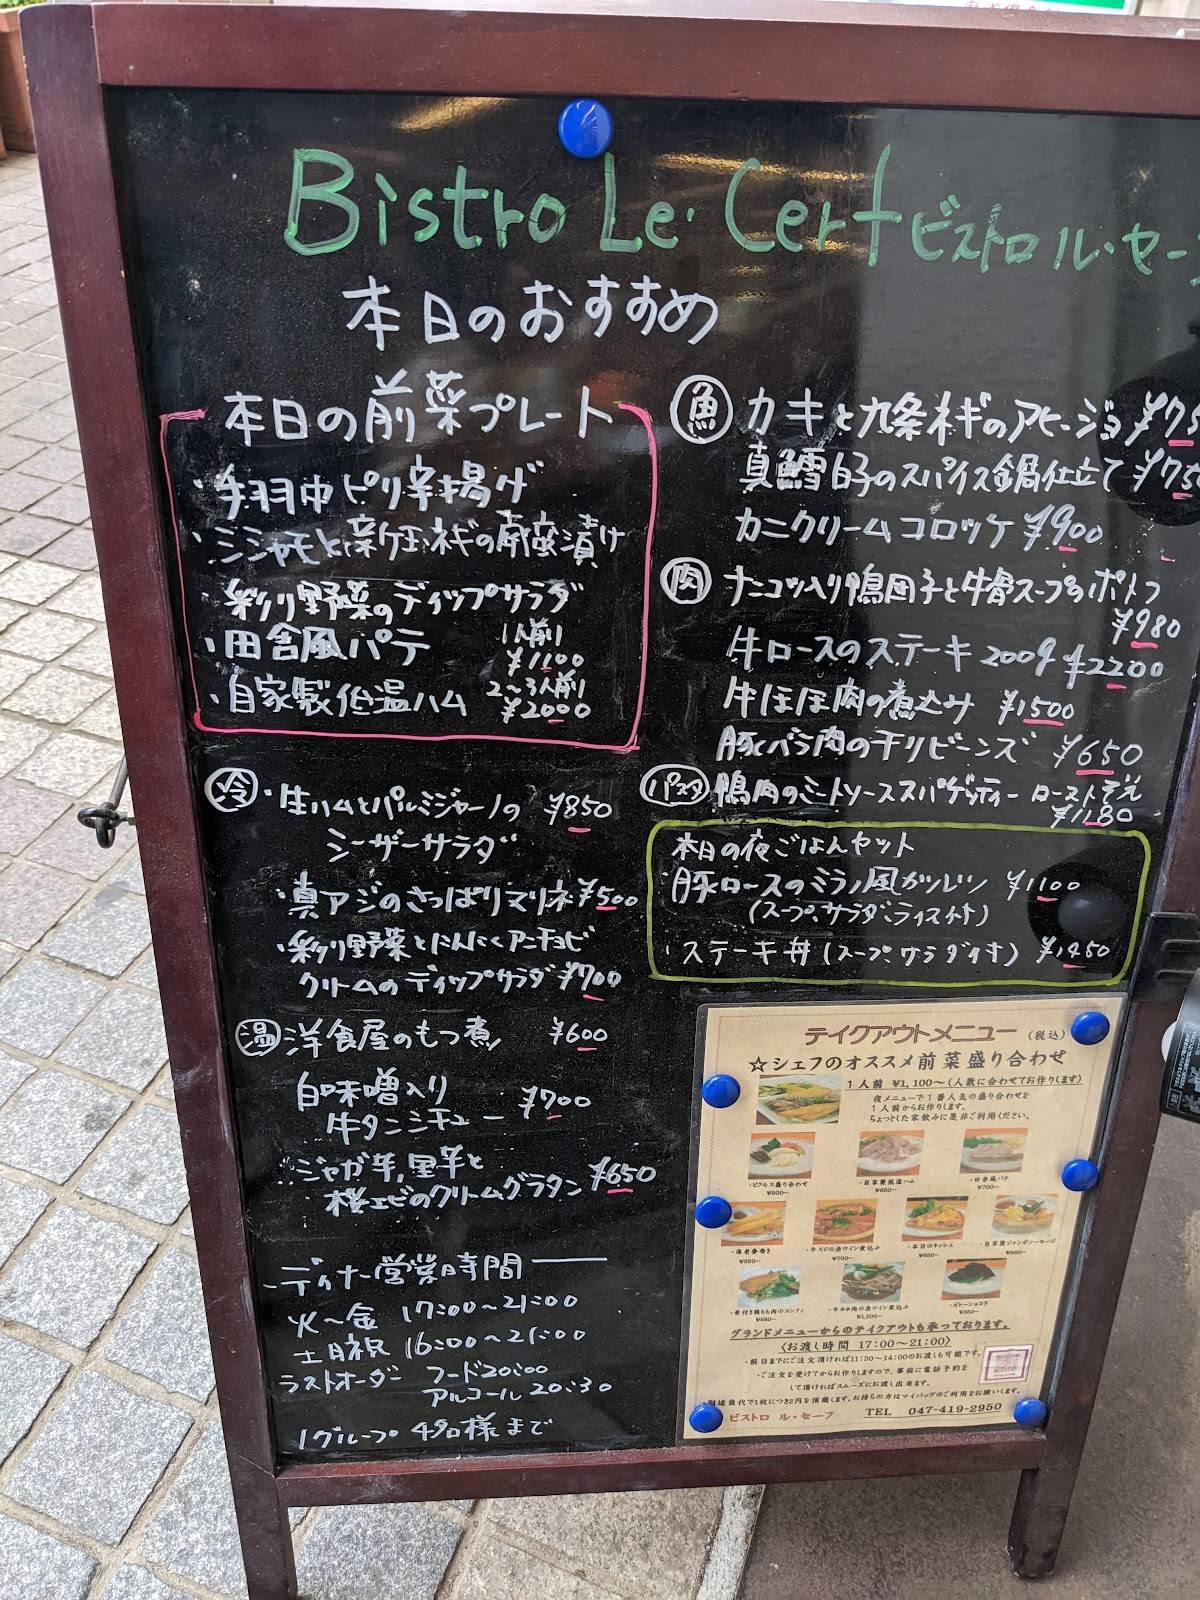 Bistro Le・Cerf ビストロ ル・セー
本日のおすすめ
本日の前菜プレート
・手羽中ピリ辛揚げ
・シシャモと新玉ネギの南蛮漬け
彩り野菜のディップサラダ
・田舎風パテ
1人前 ¥1100
・自家製低温ハム
2〜3人前 ¥2000
冷 ・生ハムとパルミジャーノの ¥850
シーザーサラダ
・真アジのさっぱりマリネ ¥500
・彩り野菜とにんにくアンチョビ
クリームのディップサラダ ¥700
温 洋食屋のもつ煮 ¥600
白味噌入り
牛タンシチュー ¥700
ジャガ芋,里芋と
桜エビのクリームグラタン ¥650
ディナー営業時間
火〜金 17:00〜21:00
土日祝 16:00〜21:00
ラストオーダー フード20:00
アルコール20:30
1グループ 4名様まで
魚 カキと九条ネギのアヒージョ ¥75
真鱈白子のスパイス鍋仕立て ¥750
カニクリームコロッケ ¥900
肉 ナンコツ入り鴨団子と牛骨スープのポトフ
¥980
牛ロースのステーキ 200g ¥2200
牛ほほ肉の煮込み ¥1500
豚バラ肉のチリビーンズ ¥650
パスタ 鴨肉のミートソーススパゲッティー ロースト添え
¥1180
本日の夜ごはんセット
・豚ロースのミラノ風カツレツ ¥1100
(スープ,サラダ,ライス付)
・ステーキ丼(スープ,サラダ付き) ¥1450
テイクアウトメニュー (税込)
☆シェフのオススメ前菜盛り合わせ
1人前 ¥1,100〜(人数に合わせてお作りします)
夜メニューで1番人気の盛り合わせを
1人前からお作りします。
ちょっとした家飲みに是非ご利用ください。
・ピクルス盛り合わせ
¥500〜
・自家製低温ハム
¥650〜
・田舎風パテ
¥700〜
・海老春巻き
¥650〜
・牛スジの赤ワイン煮込み
¥700〜
・本日のキッシュ
・自家製ジャンボソーセージ
・骨付き鶏もも肉のコンフィ
・牛ホホ肉の赤ワイン煮込み
¥1,500〜
・ガトーショコラ
グランドメニューからのテイクアウトも承っております。
〈お渡し時間 17:00〜21:00〉
・前日までにご注文頂ければ11:30〜14:00のお渡しも可能です。
・ご注文を受けてからお作りしますので、事前に電話予約を
して頂ければスムーズにお渡し出来ます。
別途袋代で1枚につき2円を頂戴します。お持ちの方はマイバッグのご利用をお願いします。
ビストロ ル・セーフ TEL 047-419-2950